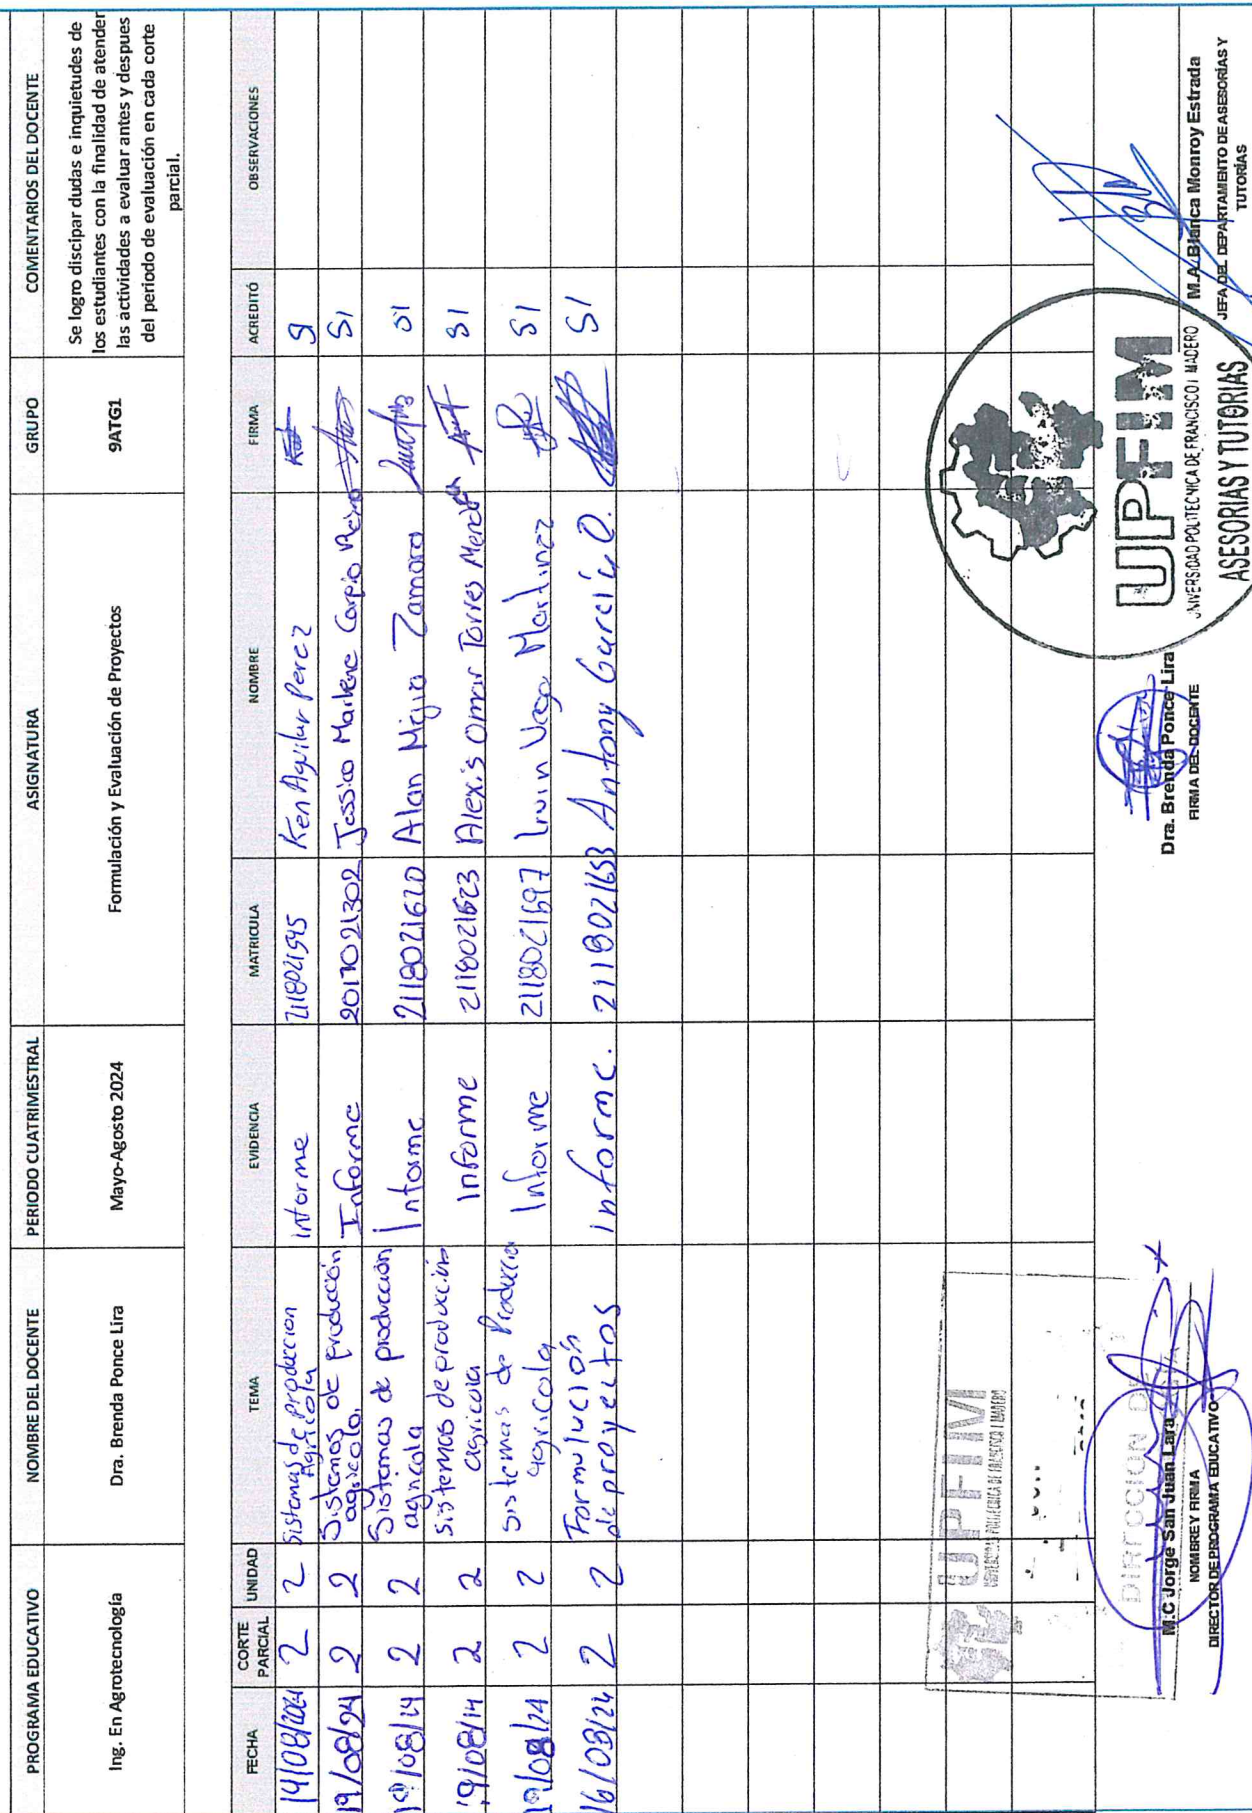 PROGRAMA EDUCATIVO NOMBRE DEL DOCENTE PERIODO CUATRIMESTRAL ASIGNATURA GRUPO COMENTARIOS DEL DOCENTE
Ing. En Agrotecnología Dra. Brenda Ponce Lira Mayo-Agosto 2024 Formulación y Evaluación de Proyectos 9ATG1
Se logro discipar dudas e inquietudes de
los estudiantes con la finalidad de atender
las actividades a evaluar antes y despues
del periodo de evaluación en cada corte
parcial.
FECHA CORTE PARCIAL UNIDAD TEMA EVIDENCIA MATRICULA NOMBRE FIRMA ACREDITÓ OBSERVACIONES
14/08/2024 2 2 Sistemas de produccion Agricola informe 2118021545 Ken Aguilar Perez SI
19/08/24 2 2 Sistemas de producción agricola. Informe 2017021302 Jessica Marlene Carpio SI
19/08/24 2 2 Sistemas de producción agricola Informe 2118021620 Alan Mejia Zamora SI
19/08/24 2 2 sistemas de producción agricola Informe 2118021623 Alexis Omar Torres SI
19/08/24 2 2 sistemas de Produccion agricola Informe 2118021597 Irvin Vega Martinez SI
16/08/24 2 2 Formulación de proyectos informe. 2118021653 Antony García O. SI
UPFIM
UNIVERSIDAD POLITECNICA DE FRANCISCO I MADERO
DIRECCION DE
M.C Jorge San Juan Lara
NOMBRE Y FIRMA
DIRECTOR DE PROGRAMA EDUCATIVO
Dra. Brenda Ponce Lira
FIRMA DEL DOCENTE
UPFIM
UNIVERSIDAD POLITECNICA DE FRANCISCO I MADERO
ASESORIAS Y TUTORIAS
M.A. Blanca Monroy Estrada
JEFA DEL DEPARTAMENTO DE ASESORÍAS Y
TUTORÍAS